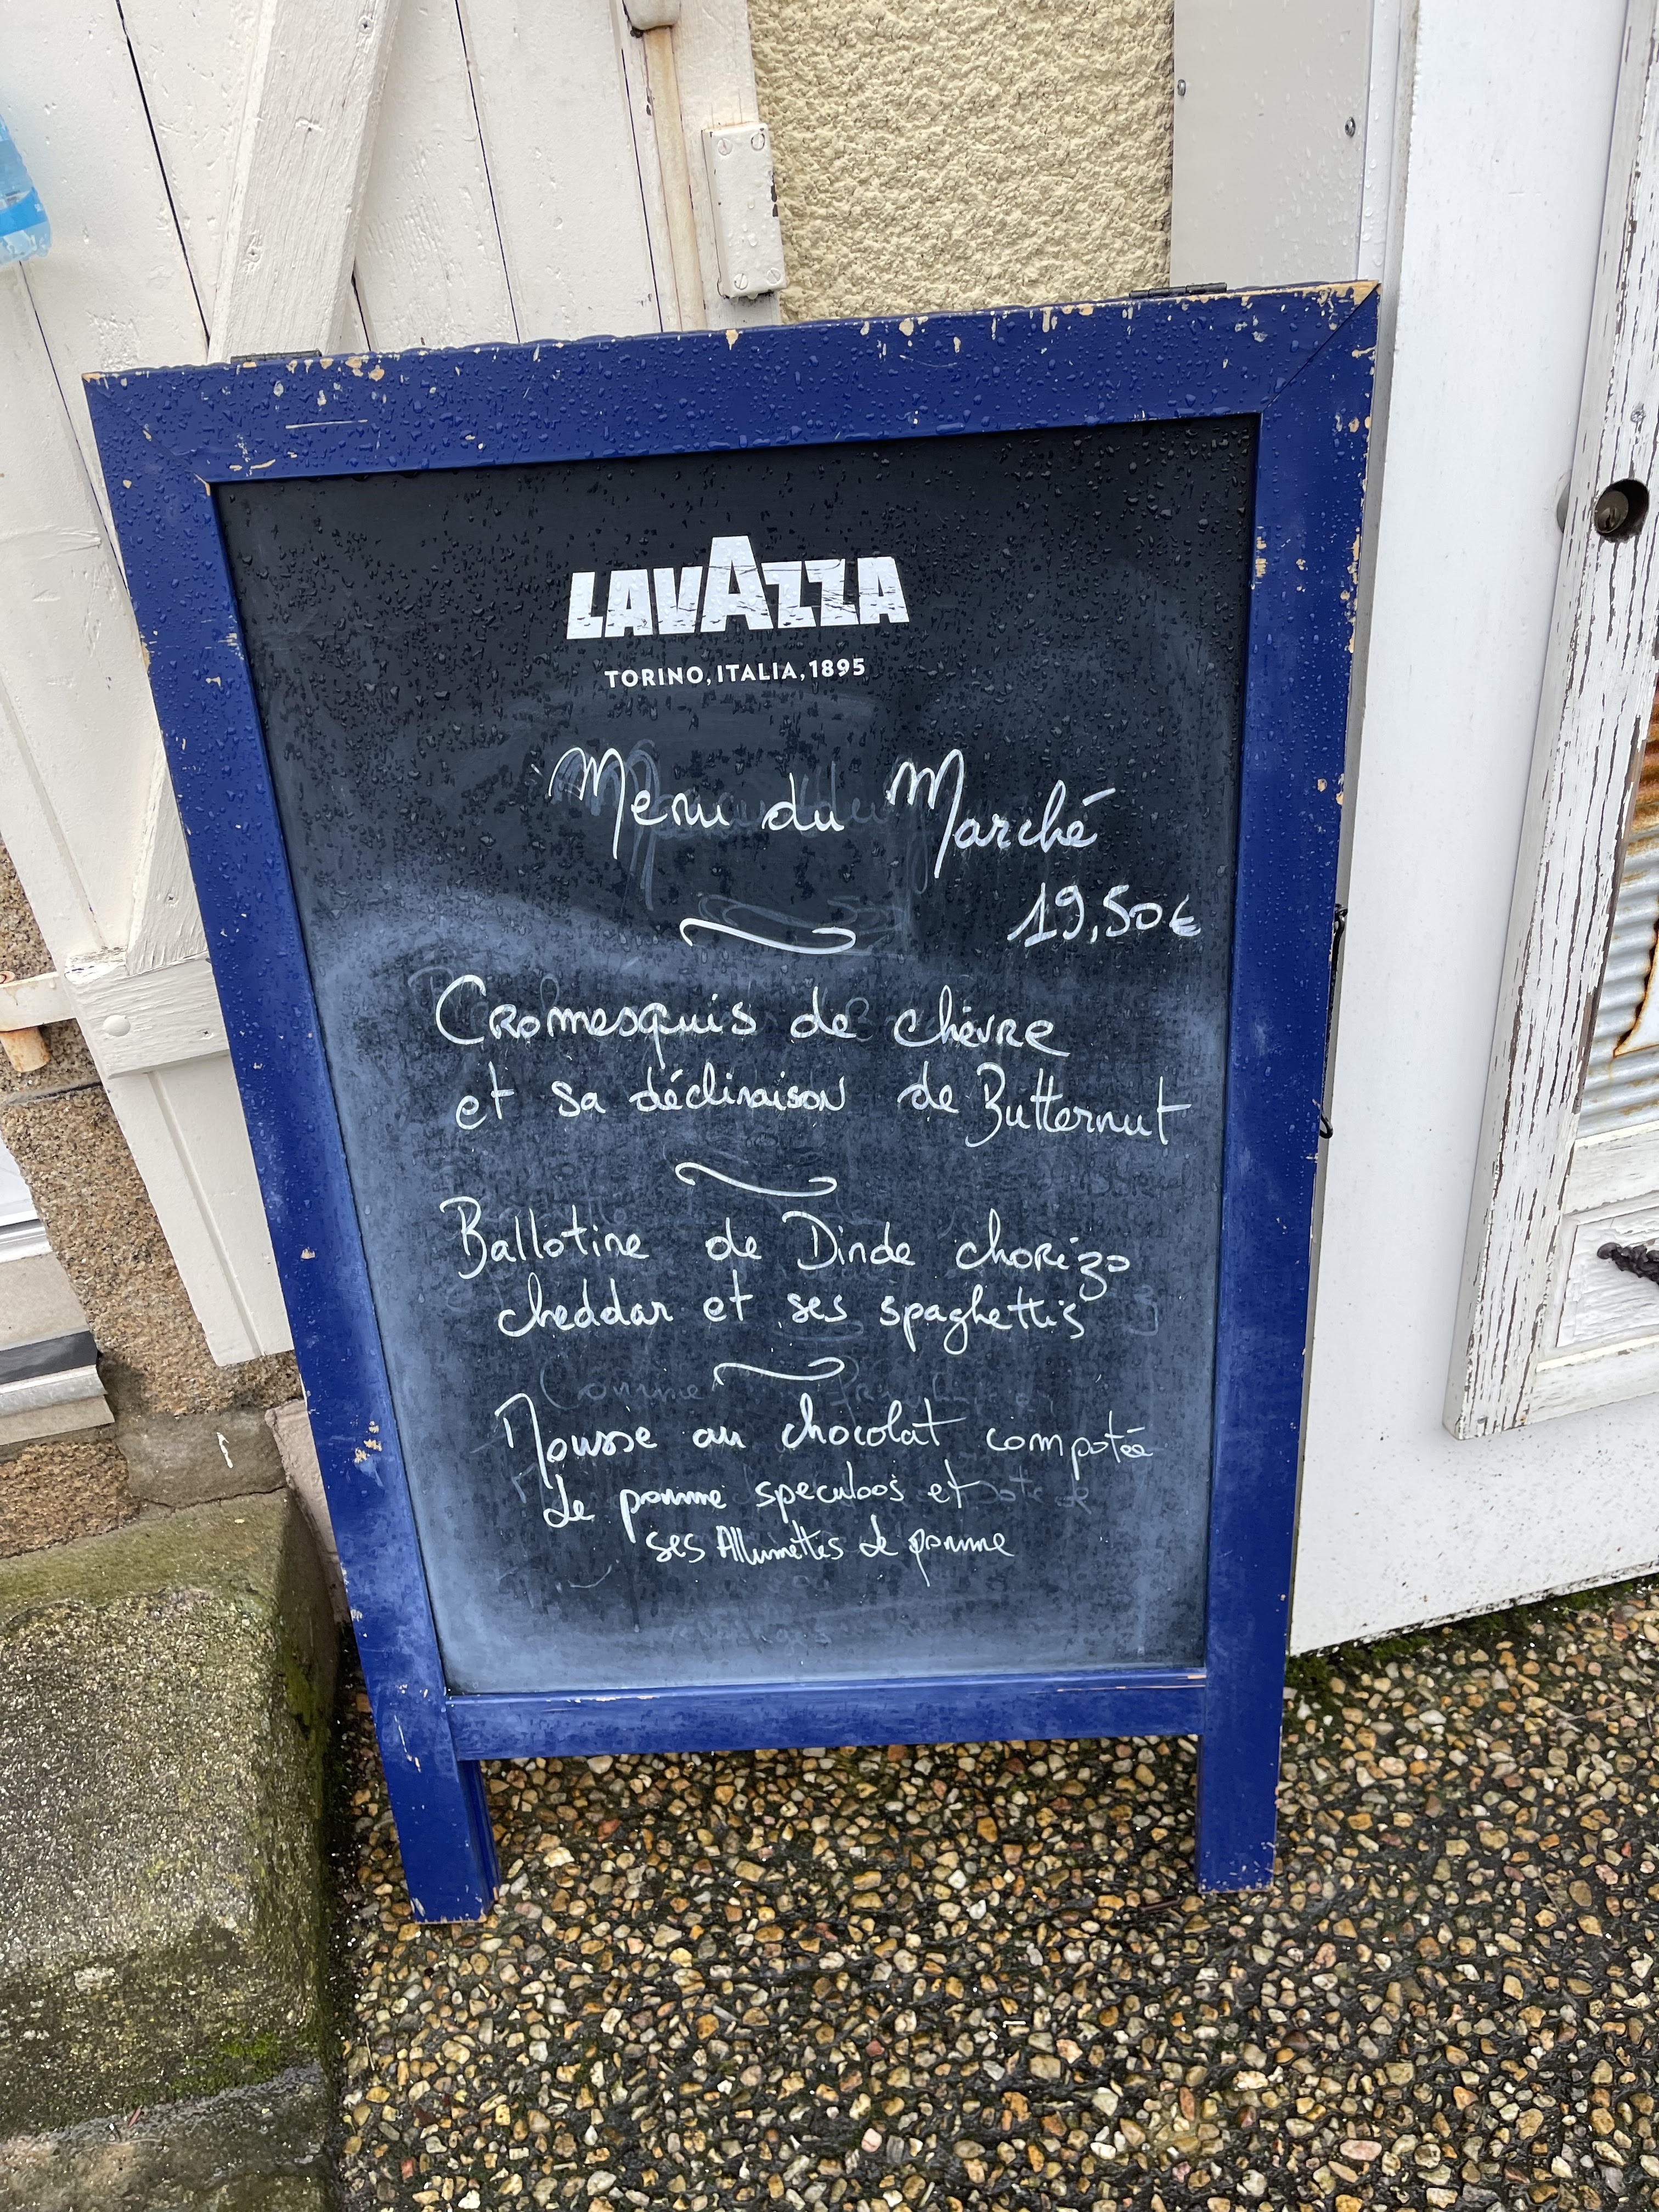 LAVAZZA
TORINO, ITALIA, 1895
Menu du Marché
19,50€
Cromesquis de chèvre
et sa déclinaison de Butternut
Ballotine de Dinde chorizo
cheddar et ses spaghettis
Mousse au chocolat compotée
de pomme speculoos et
ses Allumettes de pomme